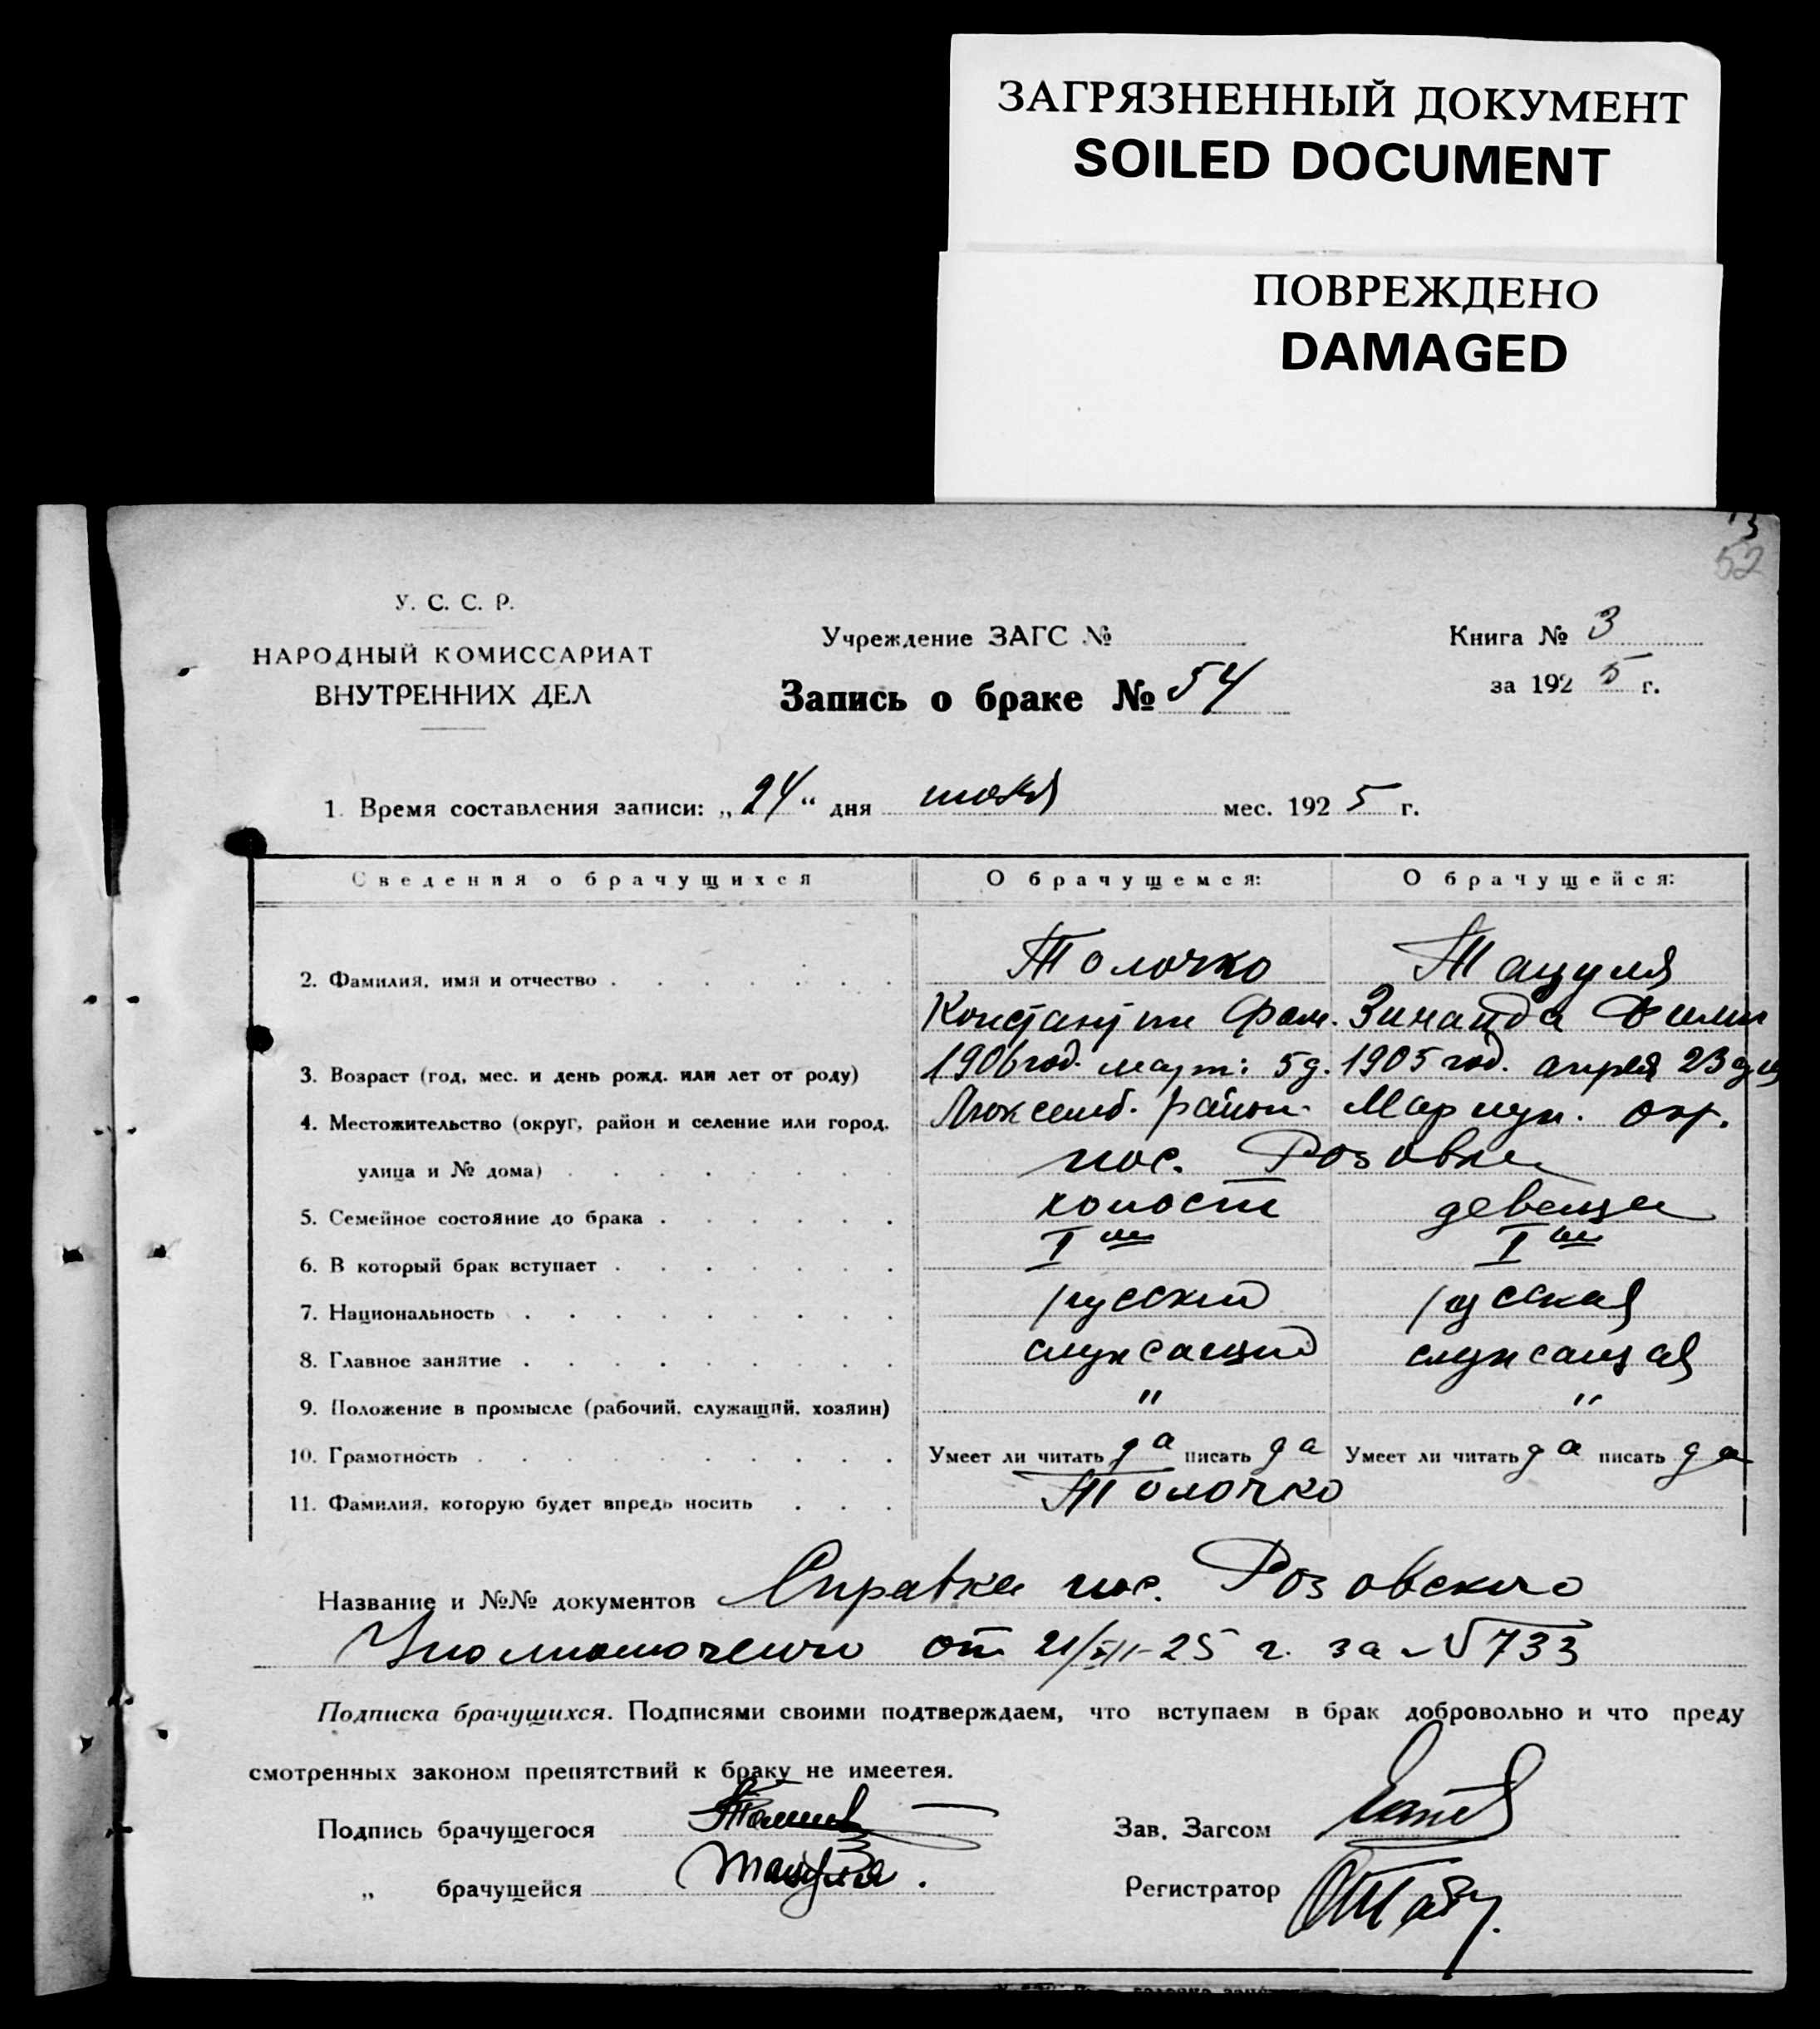 ЗАГРЯЗНЕННЫЙ ДОКУМЕНТ
SOILED DOCUMENT
ПОВРЕЖДЕНО
DAMAGED
52
У. С. С. Р.
НАРОДНЫЙ КОМИССАРИАТ
ВНУТРЕННИХ ДЕЛ
Учреждение ЗАГС №
Запись о браке № 54
Книга № 3
за 1925 г.
1. Время составления записи: „24“ дня июля мес. 1925 г.
Сведения о брачущихся О брачущемся: О брачущейся:
2. Фамилия, имя и отчество Толочко Тацуля
Константин Фом. Зинаида Филип
3. Возраст (год, мес. и день рожд. или лет от роду) 1906 год. март: 5 д. 1905 год. апреля 23 дня
4. Местожительство (округ, район и селение или город, Люксемб. район Мариуп. окр.
улица и № дома) пос. Розовка
5. Семейное состояние до брака холост девица
6. В который брак вступает I ый I ый
7. Национальность русский русская
8. Главное занятие служащий служащая
9. Положение в промысле (рабочий, служащий, хозяин) " "
10. Грамотность Умеет ли читать да писать да Умеет ли читать да писать да
11. Фамилия, которую будет впредь носить Толочко
Название и №№ документов Справка пос. Розовского
Уполномоченого от 21/VII-25 г. за № 733
Подписка брачущихся. Подписями своими подтверждаем, что вступаем в брак добровольно и что преду
смотренных законом препятствий к браку не имеетея.
Подпись брачущегося
„ брачущейся Тацуля.
Зав. Загсом
Регистратор